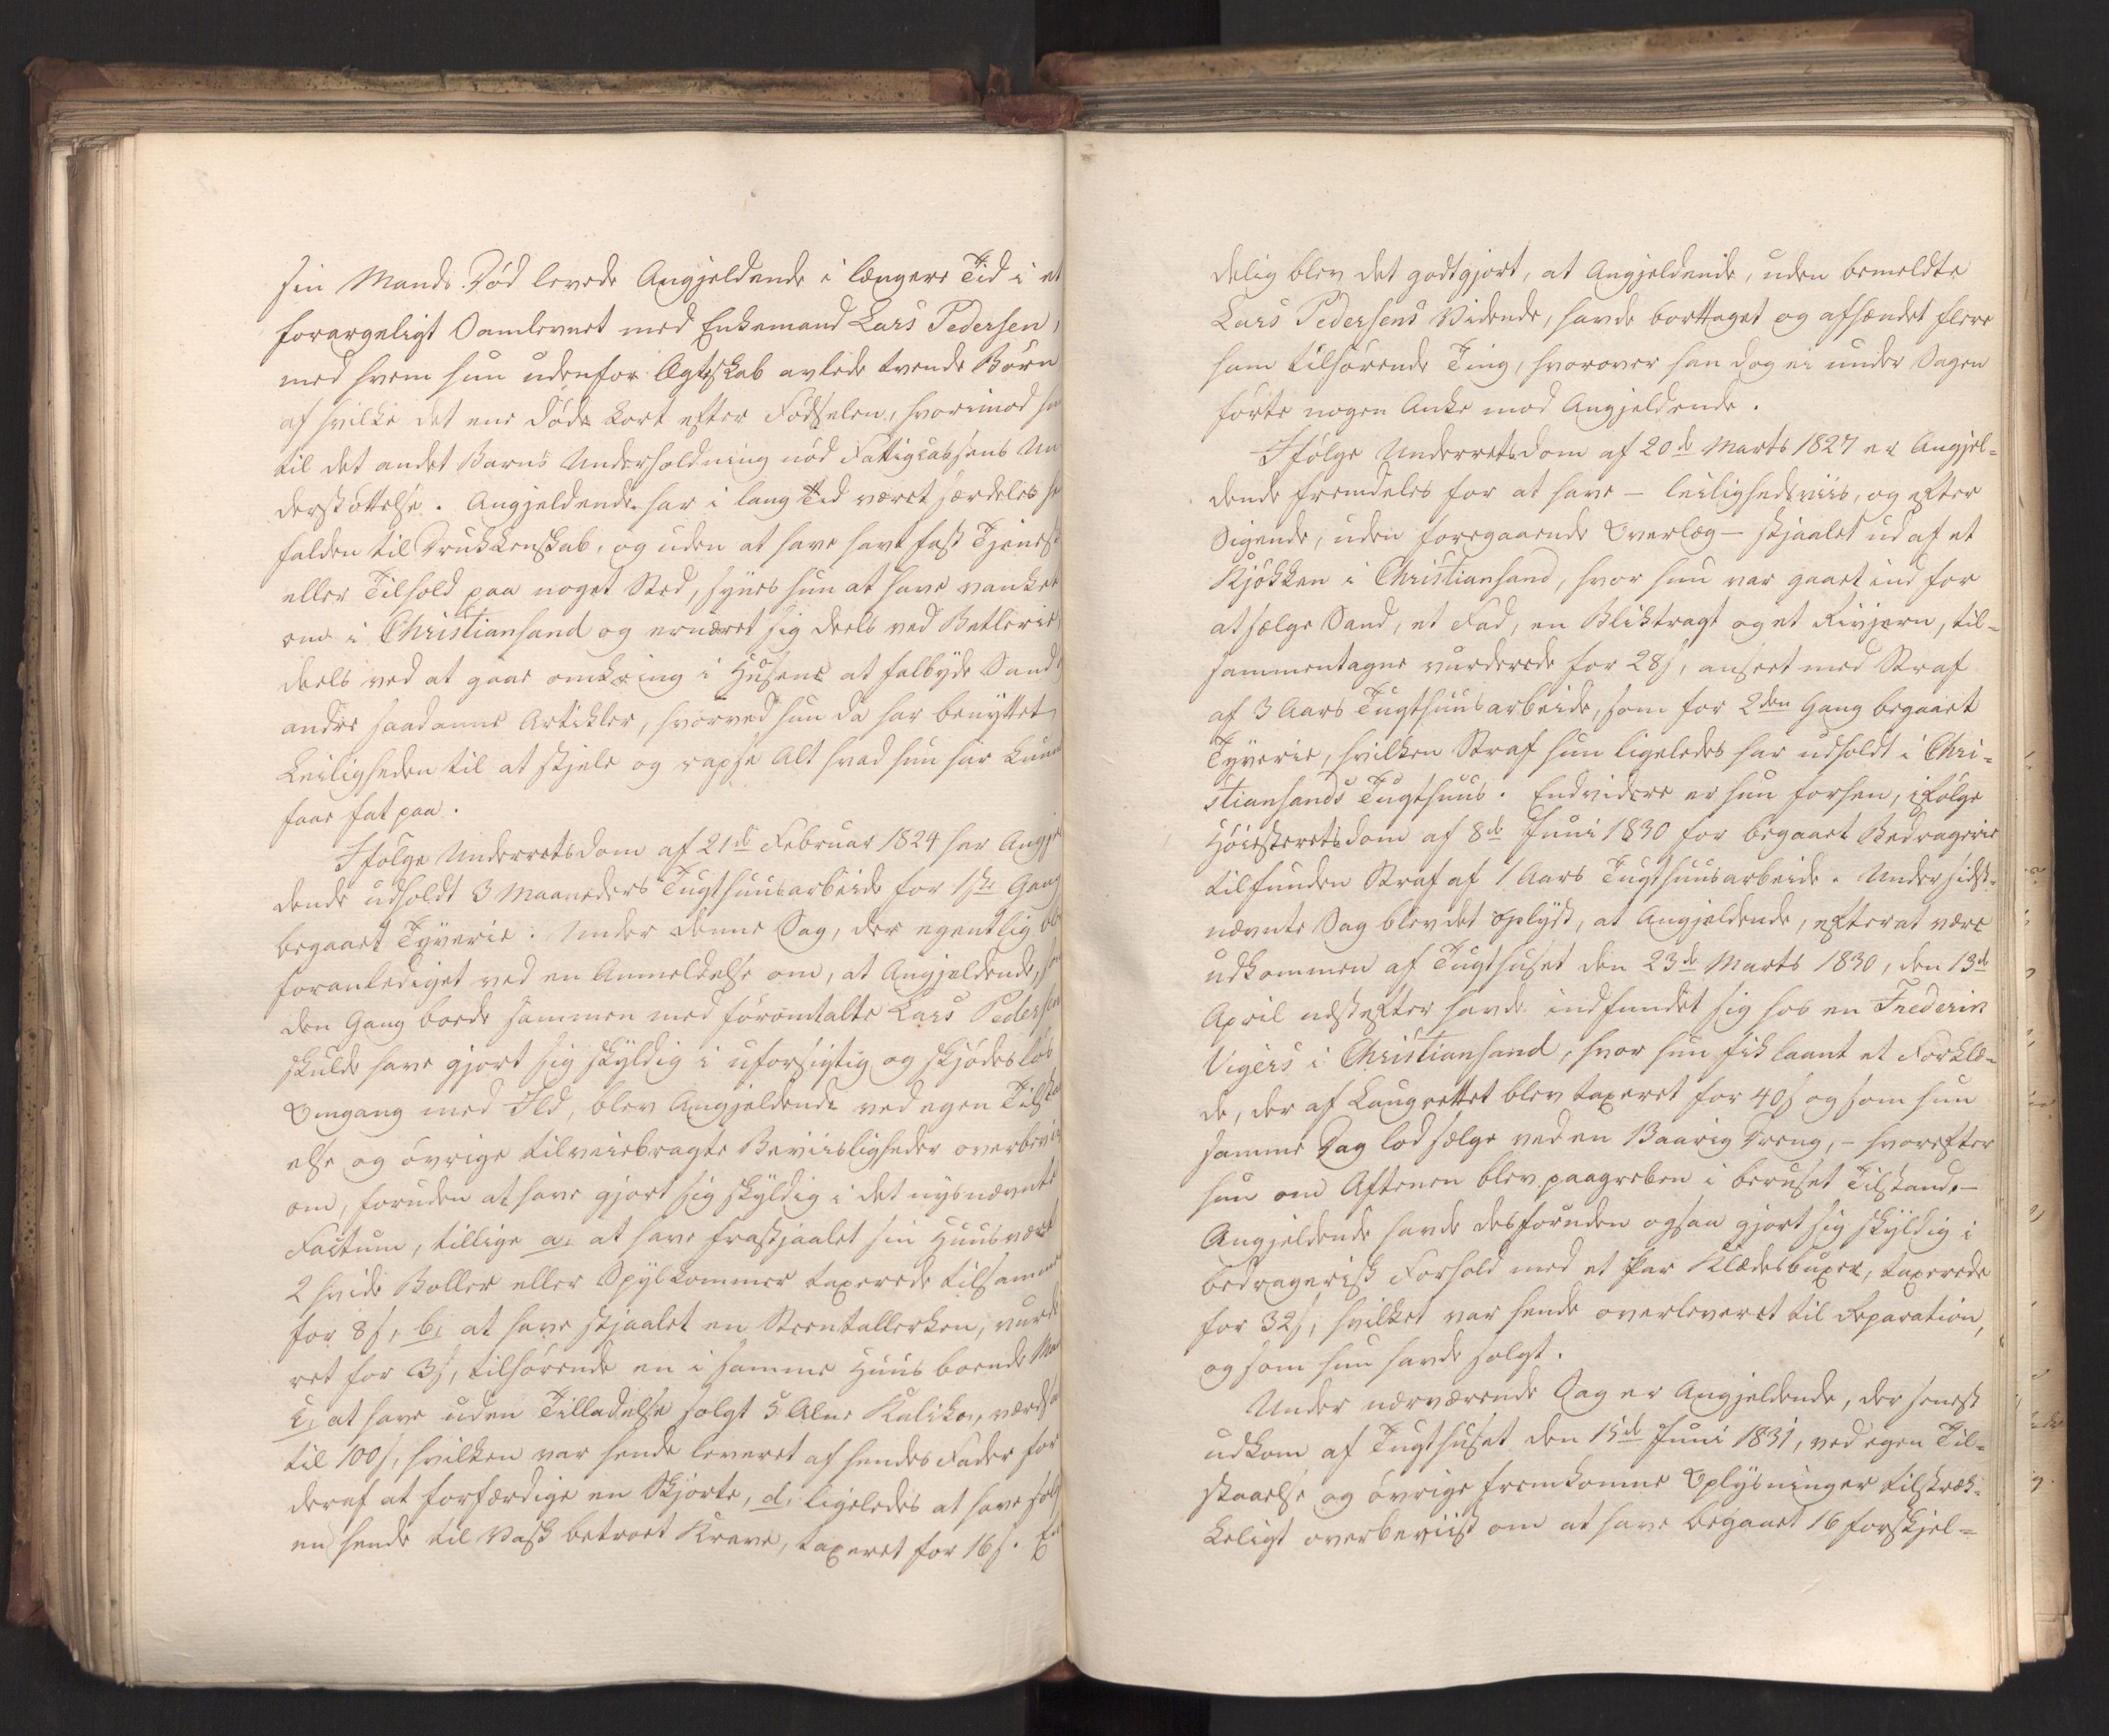 sin Mands Död levede Angjeldende i længere Tid i et
forargeligt Samlevnet med Enkemand Lars Pedersen,
med hvem hun udenfor Ægteskab avlede tvende Börn
af hvilke det ene döde kort efter Födselen, hvorimod hu
til det andet Barns Underholdning nöd Fattigcassens Un
derstöttelse. Angjeldende har i lang Tid været særdeles he
falden til Drukkenskab, og uden at have havt fast Tjeneste
eller Tilhold paa noget Sted, synes hun at have vanket
om i Christiansand og ernæret sig deels ved Betlerie,
deels ved at gaae omkring i Husene at falbyde Sand
andre saadanne Artikler, hvorved hun da har benyttet
Leiligheden til at stjele og rapse Alt hvad hun har kun
faae fat paa.
Ifölge Underretsdom af 21de Februar 1824 har Angje
dende udholdt 3 Maaneders Tugthuusarbeide for 1ste Gang
begaaet Tyverie. Under denne Sag, der egentlig bl
foranlediget ved en Anmeldelse om, at Angjeldende, so
den Gang boede sammen med foromtalte Lars Pedersen
skulde have gjort sig skyldig i uforsigtig og skjödeslös
Omgang med Ild, blev Angjeldende ved egen Tilsta
else og övrige tilveiebragte Beviisligheder overbevii
om, foruden at have gjort sig skyldig i det nysnævnte
Factum, tillige a, at have frastjaalet sin Huusvært
2 hvide Boller eller Spylkommer taxerede tilsamme
for 8 s, b, at have stjaalet en Steentallerken, vurde
ret for 3 s, tilhörende en i samme Huus boende Ma
c, at have uden Tilladelse solgt 5 Alne Kaliko, værdsa
til 100 s, hvilken var hende leveret af hendes Fader for
deraf at forfærdige en Skjorte, d, ligeledes at have solg
en hende til Vask betroet Krave, taxeret for 16 s. En
delig blev det godtgjort, at Angjeldende, uden bemeldte
Lars Pedersens Vidende, havde borttaget og afhændet flere
ham tilhörende Ting, hvorover han dog ei under Sagen
förte nogen Anke mod Angjeldende.
Ifölge Underretsdom af 20de Marts 1827 er Angjel-
dende fremdeles for at have – leilighedsviis, og efter
Sigende, uden foregaaende Overlæg – stjaalet ud af et
Kjökken i Christiansand, hvor hun var gaaet ind for
at sælge Sand, et Fad, en Bliktragt og et Rivjern, til-
sammentagne vurderede for 28 s, anseet med Straf
af 3 Aars Tugthuusarbeide, som for 2den Gang begaaet
Tyverie, hvilken Straf hun ligeledes har udholdt i Chri-
stiansands Tugthuus. Endvidere er hun forhen, ifölge
Höiesteretsdom af 8de Juni 1830 for begaaet Bedragerie
tilfunden Straf af 1 Aars Tugthuusarbeide. Under sidst-
nævnte Sag blev det oplyst, at Angjeldende, efterat være
udkommen af Tugthuset den 23de Marts 1830, den 13de
April næstefter havde indfundet sig hos en Frederik
Vigers i Christiansand, hvor hun fik laant et Forklæ-
de, der af Laugrettet blev taxeret for 40 s og som hun
samme Dag lod sælge ved en 13aarig Dreng, – hvorefter
hun om Aftenen blev paagreben i beruset Tilstand. –
Angjeldende havde desforuden ogsaa gjort sig skyldig i
bedragerisk Forhold med et Par Klædesbuxer, taxerede
for 32 s, hvilket var hende overleveret til Reparation,
og som hun havde solgt.
Under nærværende Sag er Angjeldende, der senest
udkom af Tugthuset den 15de Juni 1831, ved egen Til-
staaelse og övrige fremkomne Oplysninger tilstræk-
keligt overbeviist om at have begaaet 16 forskjel-